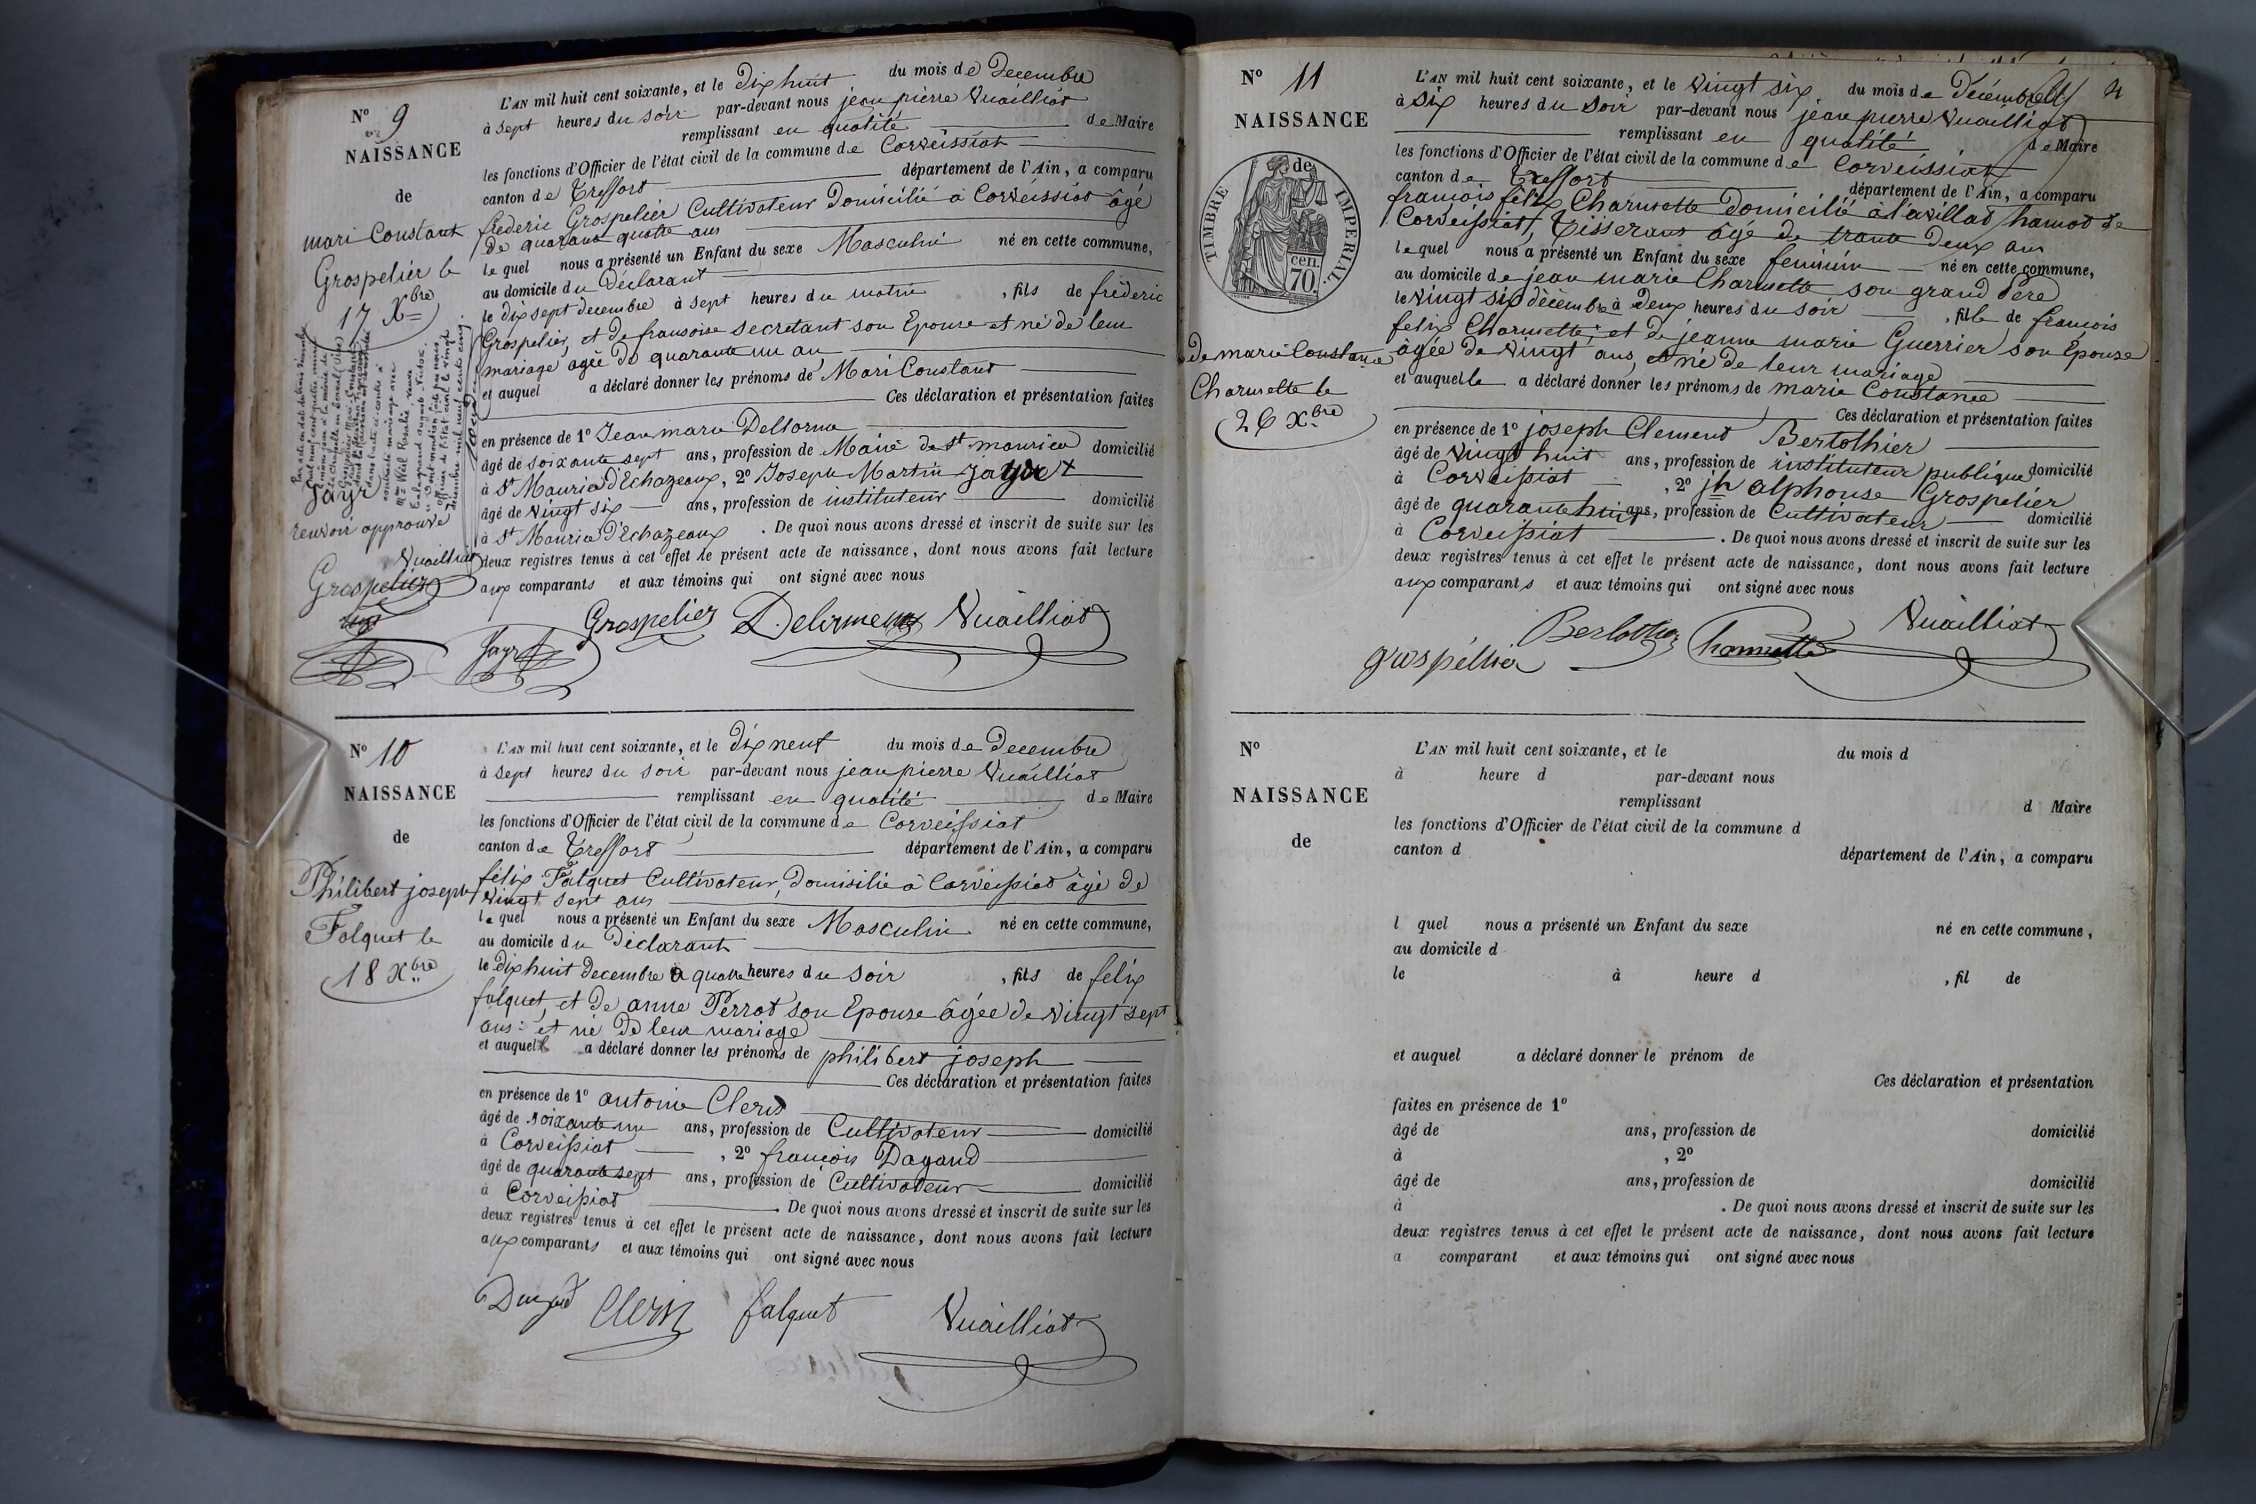 N° 9
NAISSANCE
de
mari Constant
Grospelier le
17 Xbre
L'AN mil huit cent soixante, et le Dix huit du mois de Decembre
à Sept heures du soir par-devant nous jean pierre Vuailliat
remplissant en qualité de Maire
les fonctions d'Officier de l'état civil de la commune de Corveissiat
canton de Treffort département de l'Ain, a comparu
frederic Grospelier Cultivateur Domicilié à Corveissiat âgé
de quarante quatre ans
le quel nous a présenté un Enfant du sexe Masculin né en cette commune,
au domicile du Déclarant
le dix sept decembre à sept heures du matin, fils de fréderic
Grospelier, et de fransoise secretant son Epouse et né de leur
mariage agée de quarante un an
et auquel a déclaré donner les prénoms de Mari Constant
Ces déclaration et présentation faites
en présence de 1° Jean marie Delorme
âgé de soixante sept ans, profession de Maire de st maurice domicilié
à St Maurice D'Echazeaux, 2° Joseph Martin Jayr +
âgé de vingt six ans, profession de instituteur domicilié
à St Maurice D'Echazeaux. De quoi nous avons dressé et inscrit de suite sur les
deux registres tenus à cet effet le présent acte de naissance, dont nous avons fait lecture
aux comparants et aux témoins qui ont signé avec nous
Jayr
renvoi approuvé
Vuailliat
Grospelier
Jayr Grospelier Delorme Vuailliat
N° 10
NAISSANCE
de
Philibert joseph
Falquet le
18 Xbre
L'AN mil huit cent soixante, et le Dix neuf du mois de Decembre
à Sept heures du soir par-devant nous jean pierre Vuailliat
remplissant en qualité de Maire
les fonctions d'Officier de l'état civil de la commune de Corveissiat
canton de Treffort département de l'Ain, a comparu
félix Falquet Cultivateur, Domisilié à Corveissiat âgé de
vingt sept ans
le quel nous a présenté un Enfant du sexe Masculin né en cette commune,
au domicile du Déclarant
le dix huit decembre a quatre heures du soir, fils de felix
falquet, et de anne Perrot son Epouse âgée de vingt sept
ans: et né de leur mariage
et auquel a déclaré donner les prénoms de philibert joseph
Ces déclaration et présentation faites
en présence de 1° antoine Clerc
âgé de soixante un ans, profession de Cultivateur domicilié
à Corveissiat, 2° françois Dagand
âgé de quarante sept ans, profession de Cultivateur domicilié
à Corveissiat. De quoi nous avons dressé et inscrit de suite sur les
deux registres tenus à cet effet le présent acte de naissance, dont nous avons fait lecture
aux comparants et aux témoins qui ont signé avec nous
Clerc falquet Vuailliat
N° 11
NAISSANCE
TIMBRE IMPERIAL
de
cen.
70
de marie Constance
Charnette le
26 Xbre
L'AN mil huit cent soixante, et le vingt six du mois de Décembre
à six heures du soir par-devant nous jean pierre Vuailliat
remplissant en qualité de Maire
les fonctions d'Officier de l'état civil de la commune de Corveissiat
canton de Treffort département de l'Ain, a comparu
françois félix Charnette Domicilié à l'avillat hamot de
Corveissiat, Tisserans âgé de trante deux ans
le quel nous a présenté un Enfant du sexe feminin né en cette commune,
au domicile de jean marie Charnette son grand Père
le vingt six décembre à Deux heures du soir, fille de françois
felix Charnette, et de jeanne marie Guerrier son Epouse
âgée de vingt ans, et né de leur mariage
et auquelle a déclaré donner les prénoms de marie Constance
Ces déclaration et présentation faites
en présence de 1° joseph Clement Bertothier
âgé de vingt huit ans, profession de instituteur publique domicilié
à Corveissiat, 2° jh alphonse Grospelier
âgé de quarante huit ans, profession de Cultivateur domicilié
à Corveissiat. De quoi nous avons dressé et inscrit de suite sur les
deux registres tenus à cet effet le présent acte de naissance, dont nous avons fait lecture
aux comparants et aux témoins qui ont signé avec nous
Vuailliat
Grospellier Charnette
N°
NAISSANCE
de
L'AN mil huit cent soixante, et le du mois d
à heure d par-devant nous
remplissant d Maire
les fonctions d'Officier de l'état civil de la commune d
canton d département de l'Ain, a comparu
l quel nous a présenté un Enfant du sexe né en cette commune,
au domicile d
le à heure d, fil de
et auquel a déclaré donner le prénom de
Ces déclaration et présentation
faites en présence de 1°
âgé de ans, profession de domicilié
à, 2°
âgé de ans, profession de domicilié
à. De quoi nous avons dressé et inscrit de suite sur les
deux registres tenus à cet effet le présent acte de naissance, dont nous avons fait lecture
a comparant et aux témoins qui ont signé avec nous